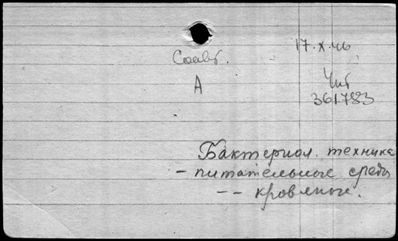 17.X.46
Соавт.
А
Чит
361783
Бактериол. техника
- питательные среды
-- кровяные.